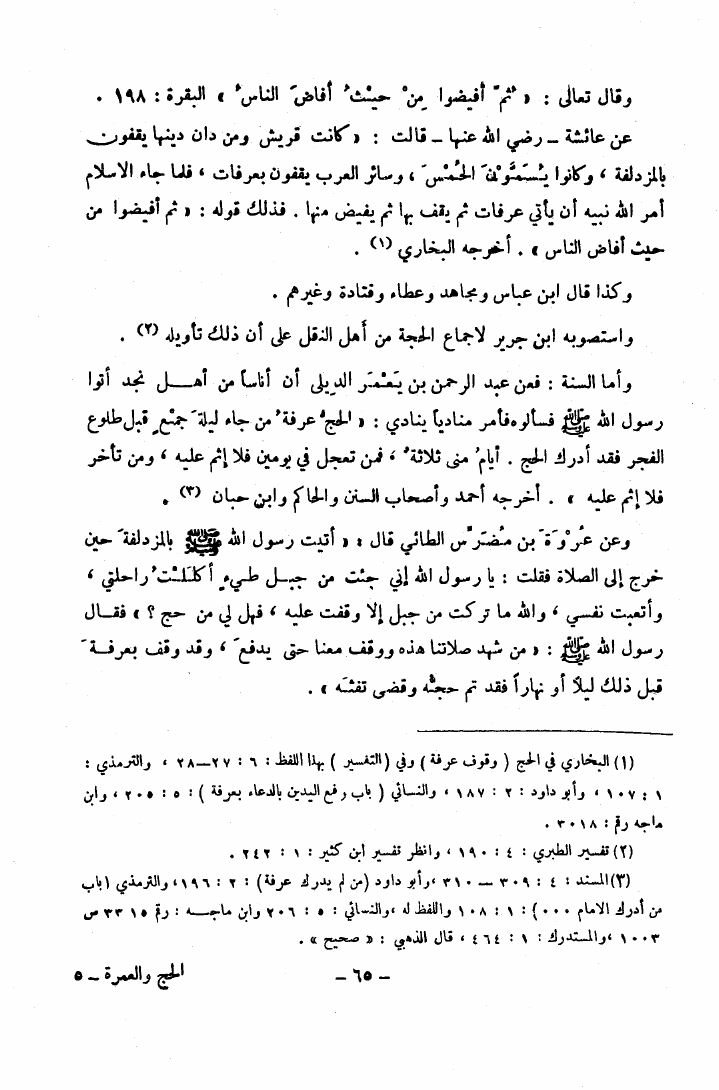 وقال تعالى : « ثمّ أفيضوا مِنْ حيْثُ أفاضَ الناسُ » البقرة : ١٩٨ .
عن عائشة ـ رضي الله عنها ـ قالت : « كانت قريش ومن دان دينها يقفون
بالمزدلفة ، وكانوا يُسَمَّوْنَ الحُمْسَ ، وسائر العرب يقفون بعرفات ، فلما جاء الاسلام
أمر الله نبيه أن يأتي عرفات ثم يقف بها ثم يفيض منها . فذلك قوله : « ثم أفيضوا من
حيث أفاض الناس » . أخرجه البخاري (١) .
وكذا قال ابن عباس ومجاهد وعطاء وقتادة وغيرهم .
واستصوبه ابن جرير لاجماع الحجة من أهل النقل على أن ذلك تأويله (٢) .
وأما السنة : فعن عبد الرحمن بن يَعْمَر الديلي أن أناساً من أهـــل نجد أتوا
رسول الله ﷺ فسألوه فأمر منادياً ينادي : « الحجُّ عرفةُ من جاء ليلةَ جَمْعٍ قبل طلوع
الفجر فقد أدرك الحج . أيامُ منى ثلاثةٌ ، فمن تعجل في يومين فلا إثم عليه ، ومن تأخر
فلا إثم عليه » . أخرجه أحمد وأصحاب السنن والحاكم وابن حبان (٣) .
وعن عُرْوَةَ بن مُضَرِّس الطائي قال : « أتيت رسول الله ﷺ بالمزدلفةَ حين
خرج إلى الصلاة فقلت : يا رسول الله إني جئت من جبـل طيءٍ أكلَلْتُ راحلتي ،
وأتعبت نفسي ، والله ما تركت من جبل إلا وقفت عليه ، فهل لي من حج ؟ » فقـال
رسول الله ﷺ : « من شهد صلاتنا هذه ووقف معنا حتى يدفعَ ، وقد وقف بعرفـةَ
قبل ذلك ليلاً أو نهاراً فقد تم حجُّه وقضى تفثَه » .
(١) البخاري في الحج ( وقوف عرفة ) وفي ( التفسير ) بهذا اللفظ : ٦ : ٢٧ـ٢٨ ، والترمذي :
١ : ١٠٧ ، وأبو داود : ٢ : ١٨٧ ، والنسائي ( باب رفع اليدين بالدعاء بعرفة ) : ٥ : ٢٠٥ ، وابن
ماجه رقم : ٣٠١٨ .
(٢) تفسير الطبري : ٤ : ١٩٠ ، وانظر تفسير ابن كثير : ١ : ٢٤٢ .
(٣) المسند : ٤ : ٣٠٩ ـ ٣١٠ ، وأبو داود (من لم يدرك عرفة) : ٢ : ١٩٦، والترمذي (باب
من أدرك الامام ٠٠٠) : ١ : ١٠٨ واللفظ له ، والنسائي : ٥ : ٢٠٦ وابن ماجــه : رقم ٣٣١٥ ص
١٠٠٣ ، والمستدرك : ١ : ٤٦٤ ، قال الذهبي : « صحيح » .
ـ ٦٥ ـ
الحج والعمرة ـ ٥